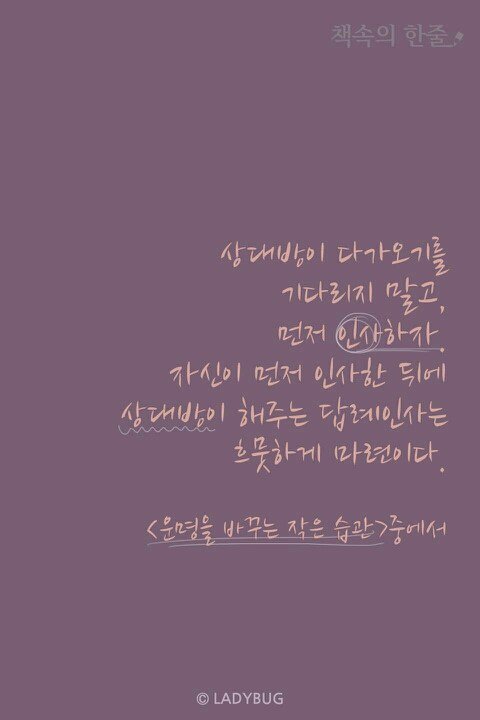 책속의 한줄
상대방이 다가오기를
기다리지 말고,
먼저 인사하자.
자신이 먼저 인사한 뒤에
상대방이 해주는 답례인사는
흐뭇하게 마련이다.
<운명을 바꾸는 작은 습관>중에서
© LADYBUG